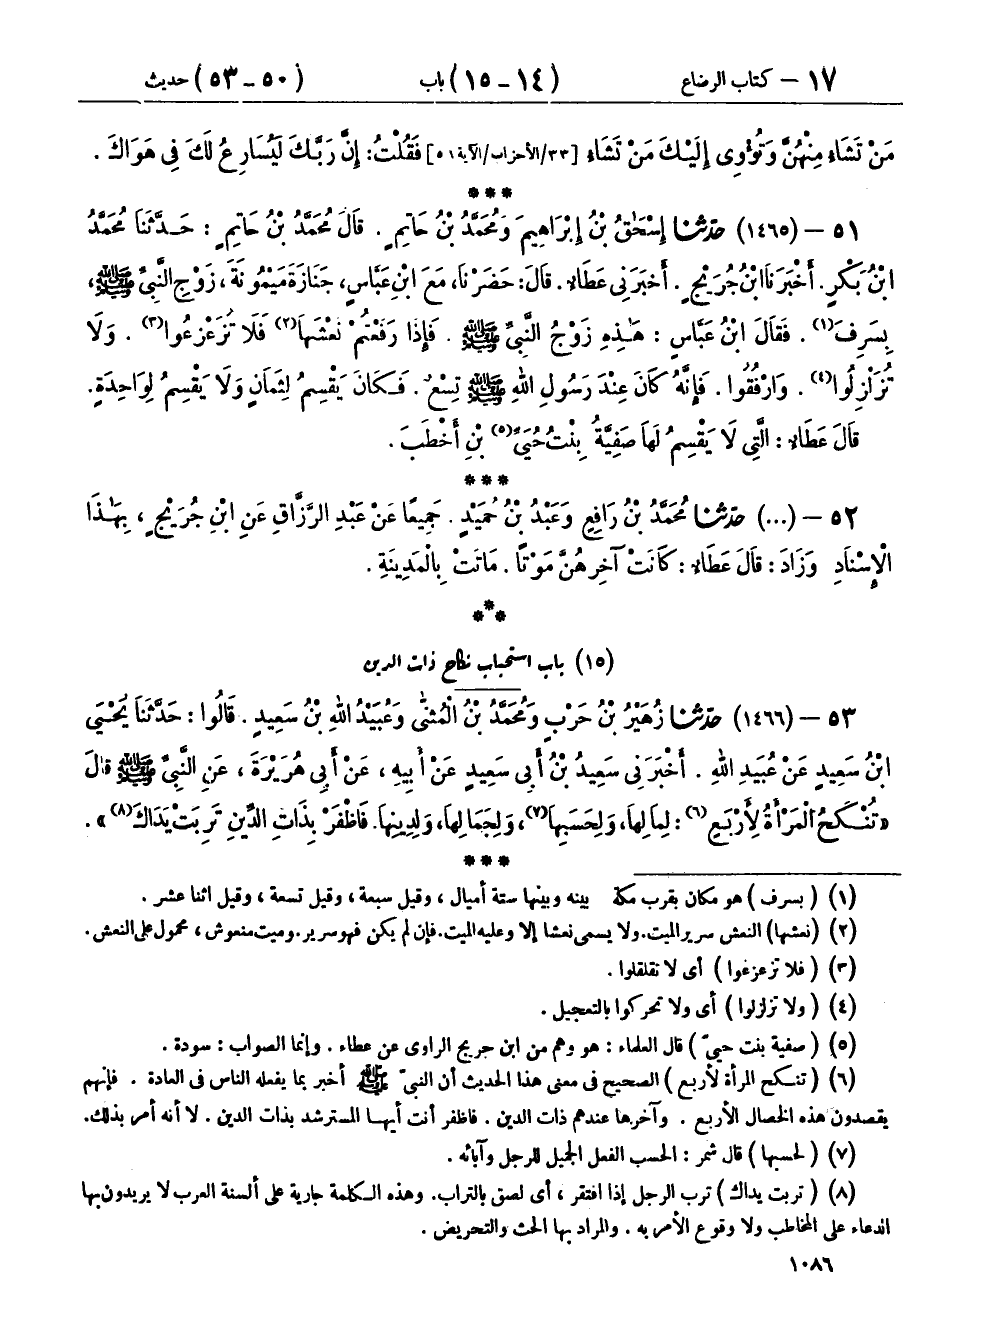 ١٧ – كتاب الرضاع (١٤ – ١٥) باب (٥٠ – ٥٣) حديث
مَنْ تَشَاءُ مِنْهُنَّ وَتُؤْوِى إِلَيْكَ مَنْ تَشَاءُ [٣٣/الأحزاب/الآية ٥١] فَقُلْتُ: إِنَّ رَبَّكَ لَيُسَارِعُ لَكَ فِى هَوَاكَ .
***
٥١ – (١٤٦٥) حدّثنا إِسْحَٰقُ بْنُ إِبْرَاهِيمَ وَمُحَمَّدُ بْنُ حَاتِمٍ . قَالَ مُحَمَّدُ بْنُ حَاتِمٍ : حَدَّثَنَا مُحَمَّدُ
ابْنُ بَكْرٍ. أَخْبَرَنَا ابْنُ جُرَيْجٍ . أَخْبَرَنِى عَطَاءٌ . قَالَ: حَضَرْنَا، مَعَ ابْنِ عَبَّاسٍ، جَنَازَةَ مَيْمُونَةَ، زَوْجِ النَّبِىِّ ﷺ،
بِسَرِفَ(١) . فَقَالَ ابْنُ عَبَّاسٍ : هَٰذِهِ زَوْجُ النَّبِىِّ ﷺ . فَإِذَا رَفَعْتُمْ نَعْشَهَا(٢) فَلَا تُزَعْزِعُوا(٣) . وَلَا
تُزَلْزِلُوا(٤) . وَارْفُقُوا . فَإِنَّهُ كَانَ عِنْدَ رَسُولِ اللهِ ﷺ تِسْعٌ . فَكَانَ يَقْسِمُ لِثَمَانٍ وَلَا يَقْسِمُ لِوَاحِدَةٍ.
قَالَ عَطَاءٌ : الَّتِى لَا يَقْسِمُ لَهَا صَفِيَّةُ بِنْتُ حُيَىِّ(٥) بْنِ أَخْطَبَ .
***
٥٢ – (...) حدّثنا مُحَمَّدُ بْنُ رَافِعٍ وَعَبْدُ بْنُ حُمَيْدٍ . جَمِيعًا عَنْ عَبْدِ الرَّزَّاقِ عَنِ ابْنِ جُرَيْجٍ ، بِهَٰذَا
الْإِسْنَادِ وَزَادَ : قَالَ عَطَاءٌ : كَانَتْ آخِرَهُنَّ مَوْتًا . مَاتَتْ بِالْمَدِينَةِ .
***
(١٥) باب استحباب نكاح ذات الدين
٥٣ – (١٤٦٦) حدّثنا زُهَيْرُ بْنُ حَرْبٍ وَمُحَمَّدُ بْنُ الْمُثَنَّى وَعُبَيْدُ اللهِ بْنُ سَعِيدٍ . قَالُوا : حَدَّثَنَا يَحْيَى
ابْنُ سَعِيدٍ عَنْ عُبَيْدِ اللهِ . أَخْبَرَنِى سَعِيدُ بْنُ أَبِى سَعِيدٍ عَنْ أَبِيهِ ، عَنْ أَبِى هُرَيْرَةَ ، عَنِ النَّبِىِّ ﷺ قَالَ
«تُنْكَحُ الْمَرْأَةُ لِأَرْبَعٍ(٦) : لِمَالِهَا، وَلِحَسَبِهَا(٧)، وَلِجَمَالِهَا، وَلِدِينِهَا. فَاظْفَرْ بِذَاتِ الدِّينِ تَرِبَتْ يَدَاكَ(٨)» .
***
(١) ( بسرف ) هو مكان بقرب مكة بينه وبينها ستة أميال ، وقيل سبعة ، وقيل تسعة ، وقيل اثنا عشر .
(٢) (نعشها) النعش سرير الميت. ولا يسمى نعشا إلا وعليه الميت. فإن لم يكن فهو سرير. وميت منعوش ، محمول على النعش.
(٣) ( فلا تزعزعوا ) أى لا تقلقلوا .
(٤) ( ولا تزلزلوا ) أى ولا تحركوا بالتعجيل .
(٥) ( صفية بنت حيىّ ) قال العلماء : هو وهم من ابن جريج الراوى عن عطاء . وإنما الصواب : سودة .
(٦) ( تنكح المرأة لأربع ) الصحيح فى معنى هذا الحديث أن النبىّ ﷺ أخبر بما يفعله الناس فى العادة . فإنهم
يقصدون هذه الخصال الأربع . وآخرها عندهم ذات الدين . فاظفر أنت أيها المسترشد بذات الدين . لا أنه أمر بذلك.
(٧) ( لحسبها ) قال شمر : الحسب الفعل الجميل للرجل وآبائه .
(٨) ( تربت يداك ) ترب الرجل إذا افتقر ، أى لصق بالتراب. وهذه الكلمة جارية على ألسنة العرب لا يريدون بها
الدعاء على المخاطب ولا وقوع الأمر به . والمراد بها الحث والتحريض .
١٠٨٦